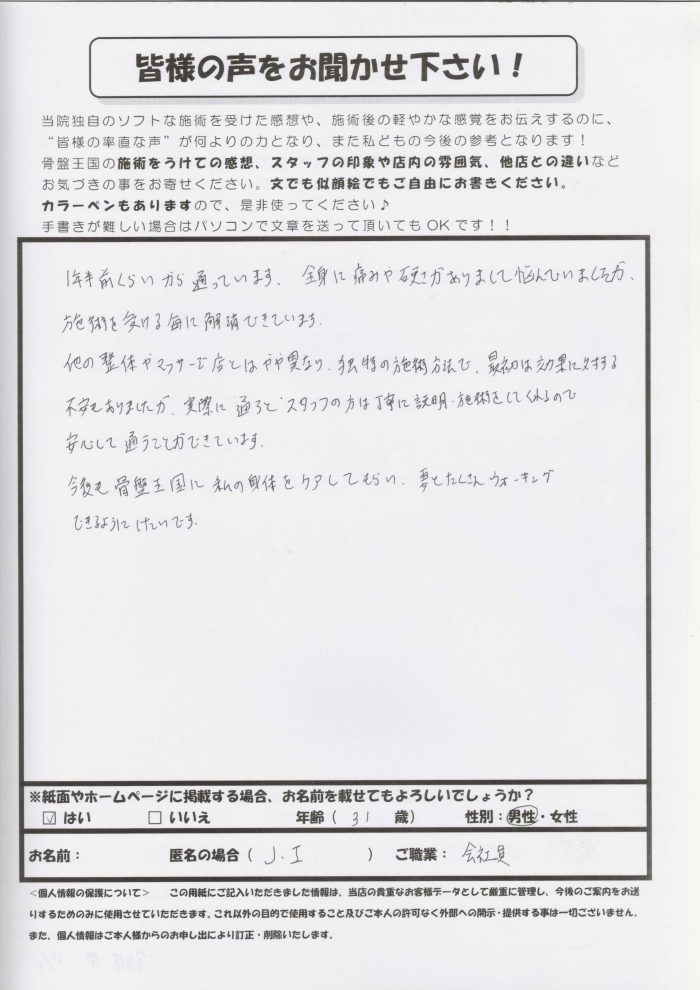 皆様の声をお聞かせ下さい！
当院独自のソフトな施術を受けた感想や、施術後の軽やかな感覚をお伝えするのに、
“皆様の率直な声”が何よりの力となり、また私どもの今後の参考となります！
骨盤王国の施術をうけての感想、スタッフの印象や店内の雰囲気、他店との違いなど
お気づきの事をお寄せください。文でも似顔絵でもご自由にお書きください。
カラーペンもありますので、是非使ってください♪
手書きが難しい場合はパソコンで文章を送って頂いてもOKです！！
1年半前くらいから通っています。全身に痛みや硬さがありまして悩んでいましたが、
施術を受ける毎に解消できています。
他の整体やマッサージ店とはやや異なり、独特の施術方法で、最初は効果に対する
不安もありましたが、実際に通うとスタッフの方は丁寧に説明・施術をしてくれるので
安心して通うことができています。
今後も骨盤王国に私の身体をケアしてもらい、妻とたくさんウォーキング
できるように
※紙面やホームページに掲載する場合、お名前を載せてもよろしいでしょうか？
☑ はい □ いいえ 年齢（ 31 歳） 性別：男性・女性
お名前： 匿名の場合（ J.I ） ご職業： 会社員
＜個人情報の保護について＞ この用紙にご記入いただきました情報は、当店の貴重なお客様データとして厳重に管理し、今後のご案内をお送
りするためのみに使用させていただきます。これ以外の目的で使用すること及びご本人の許可なく外部への開示・提供する事は一切ございません。
また、個人情報はご本人様からのお申し出により訂正・削除いたします。